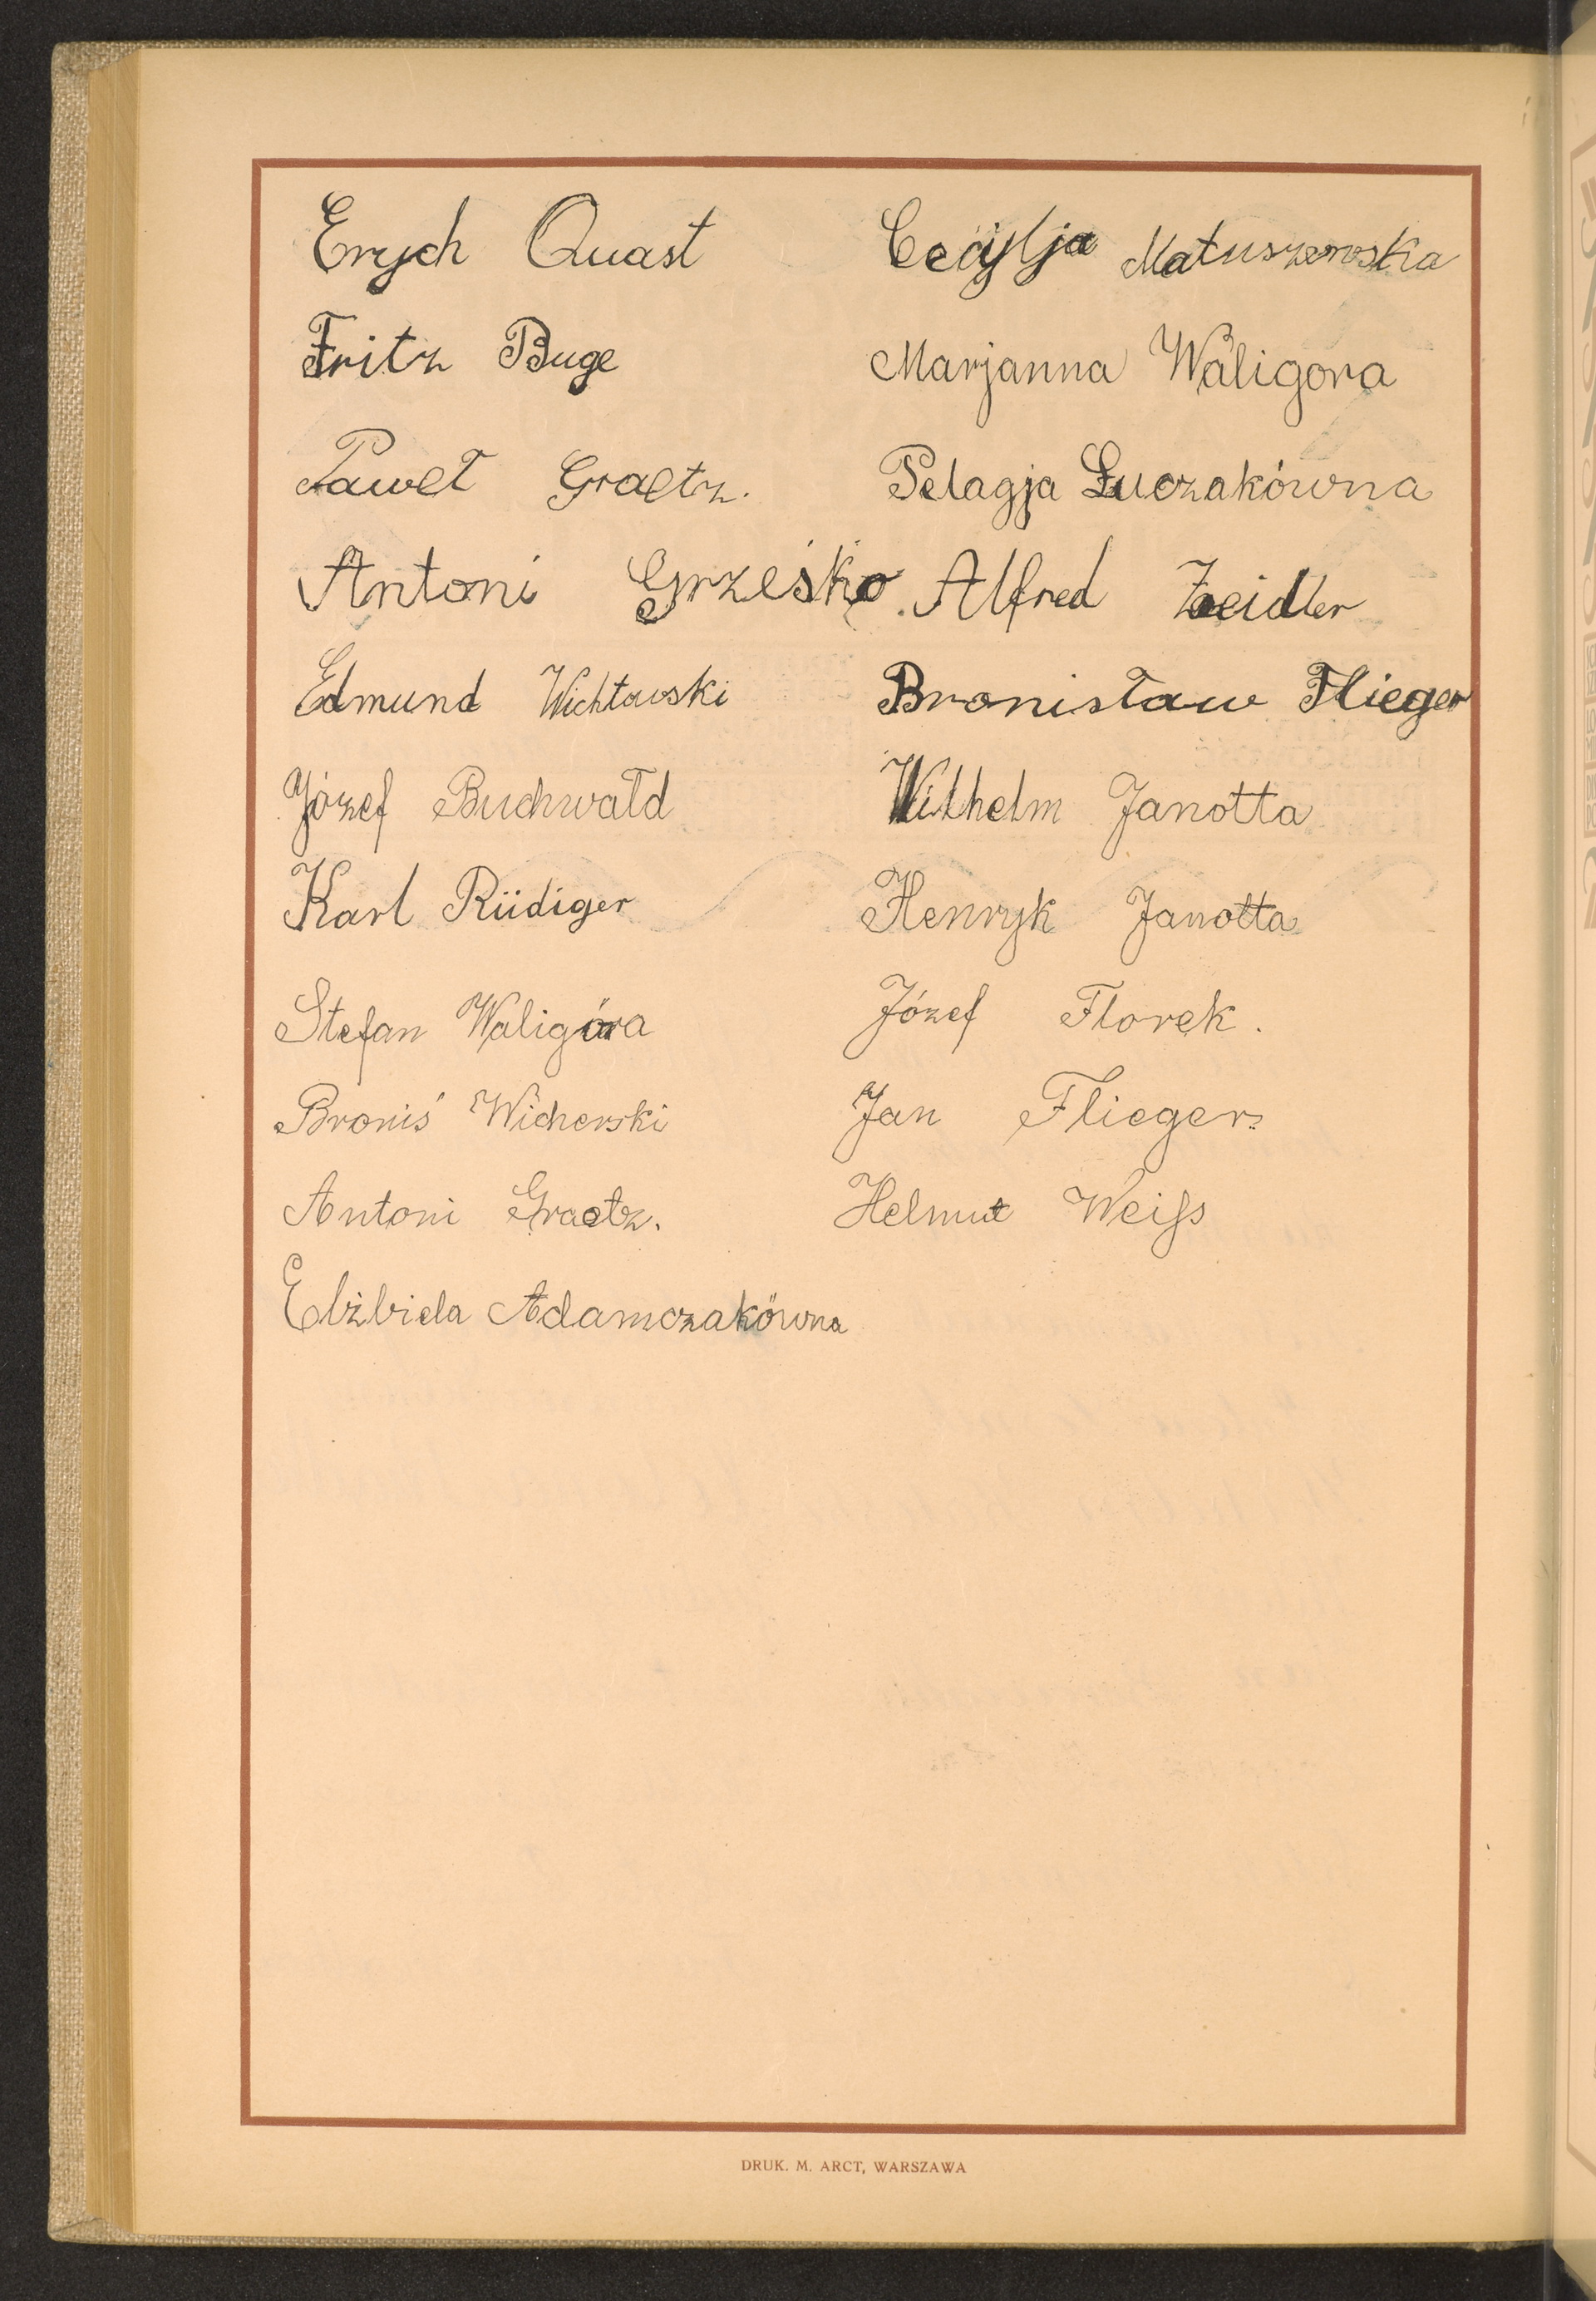 Erych Quast
Fritz Buge
Paweł Graetz.
Antoni Grześko.
Edmund Wichłowski
Józef Buchwałd
Karl Rüdiger
Stefan Waligóra
Broniś Wicherski
Antoni Graetz.
Elżbieta Adamczakówna
Cecylja Matuszewska
Marjanna Waligora
Pelagja Łuczakówna
Alfred Zeidler
Bronisław Flieger
Wilhelm Janotta
Henryk Janotta
Józef Florek.
Jan Flieger
Helmut Weiß
DRUK. M. ARCT, WARSZAWA